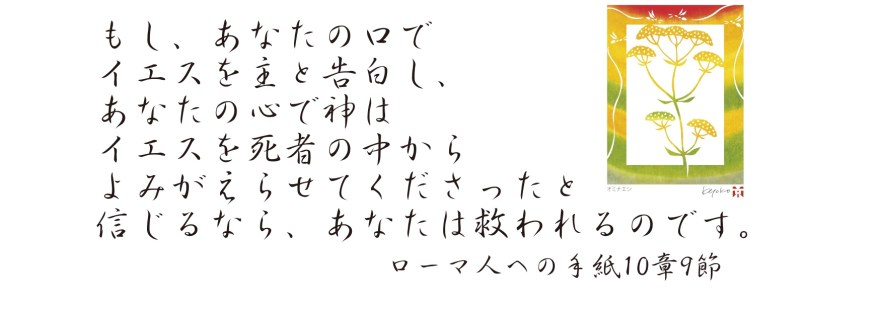 もし、あなたの口で
イエスを主と告白し、
あなたの心で神は
イエスを死者の中から
よみがえらせてくださったと
信じるなら、あなたは救われるのです。
ローマ人への手紙10章9節
オミナエシ